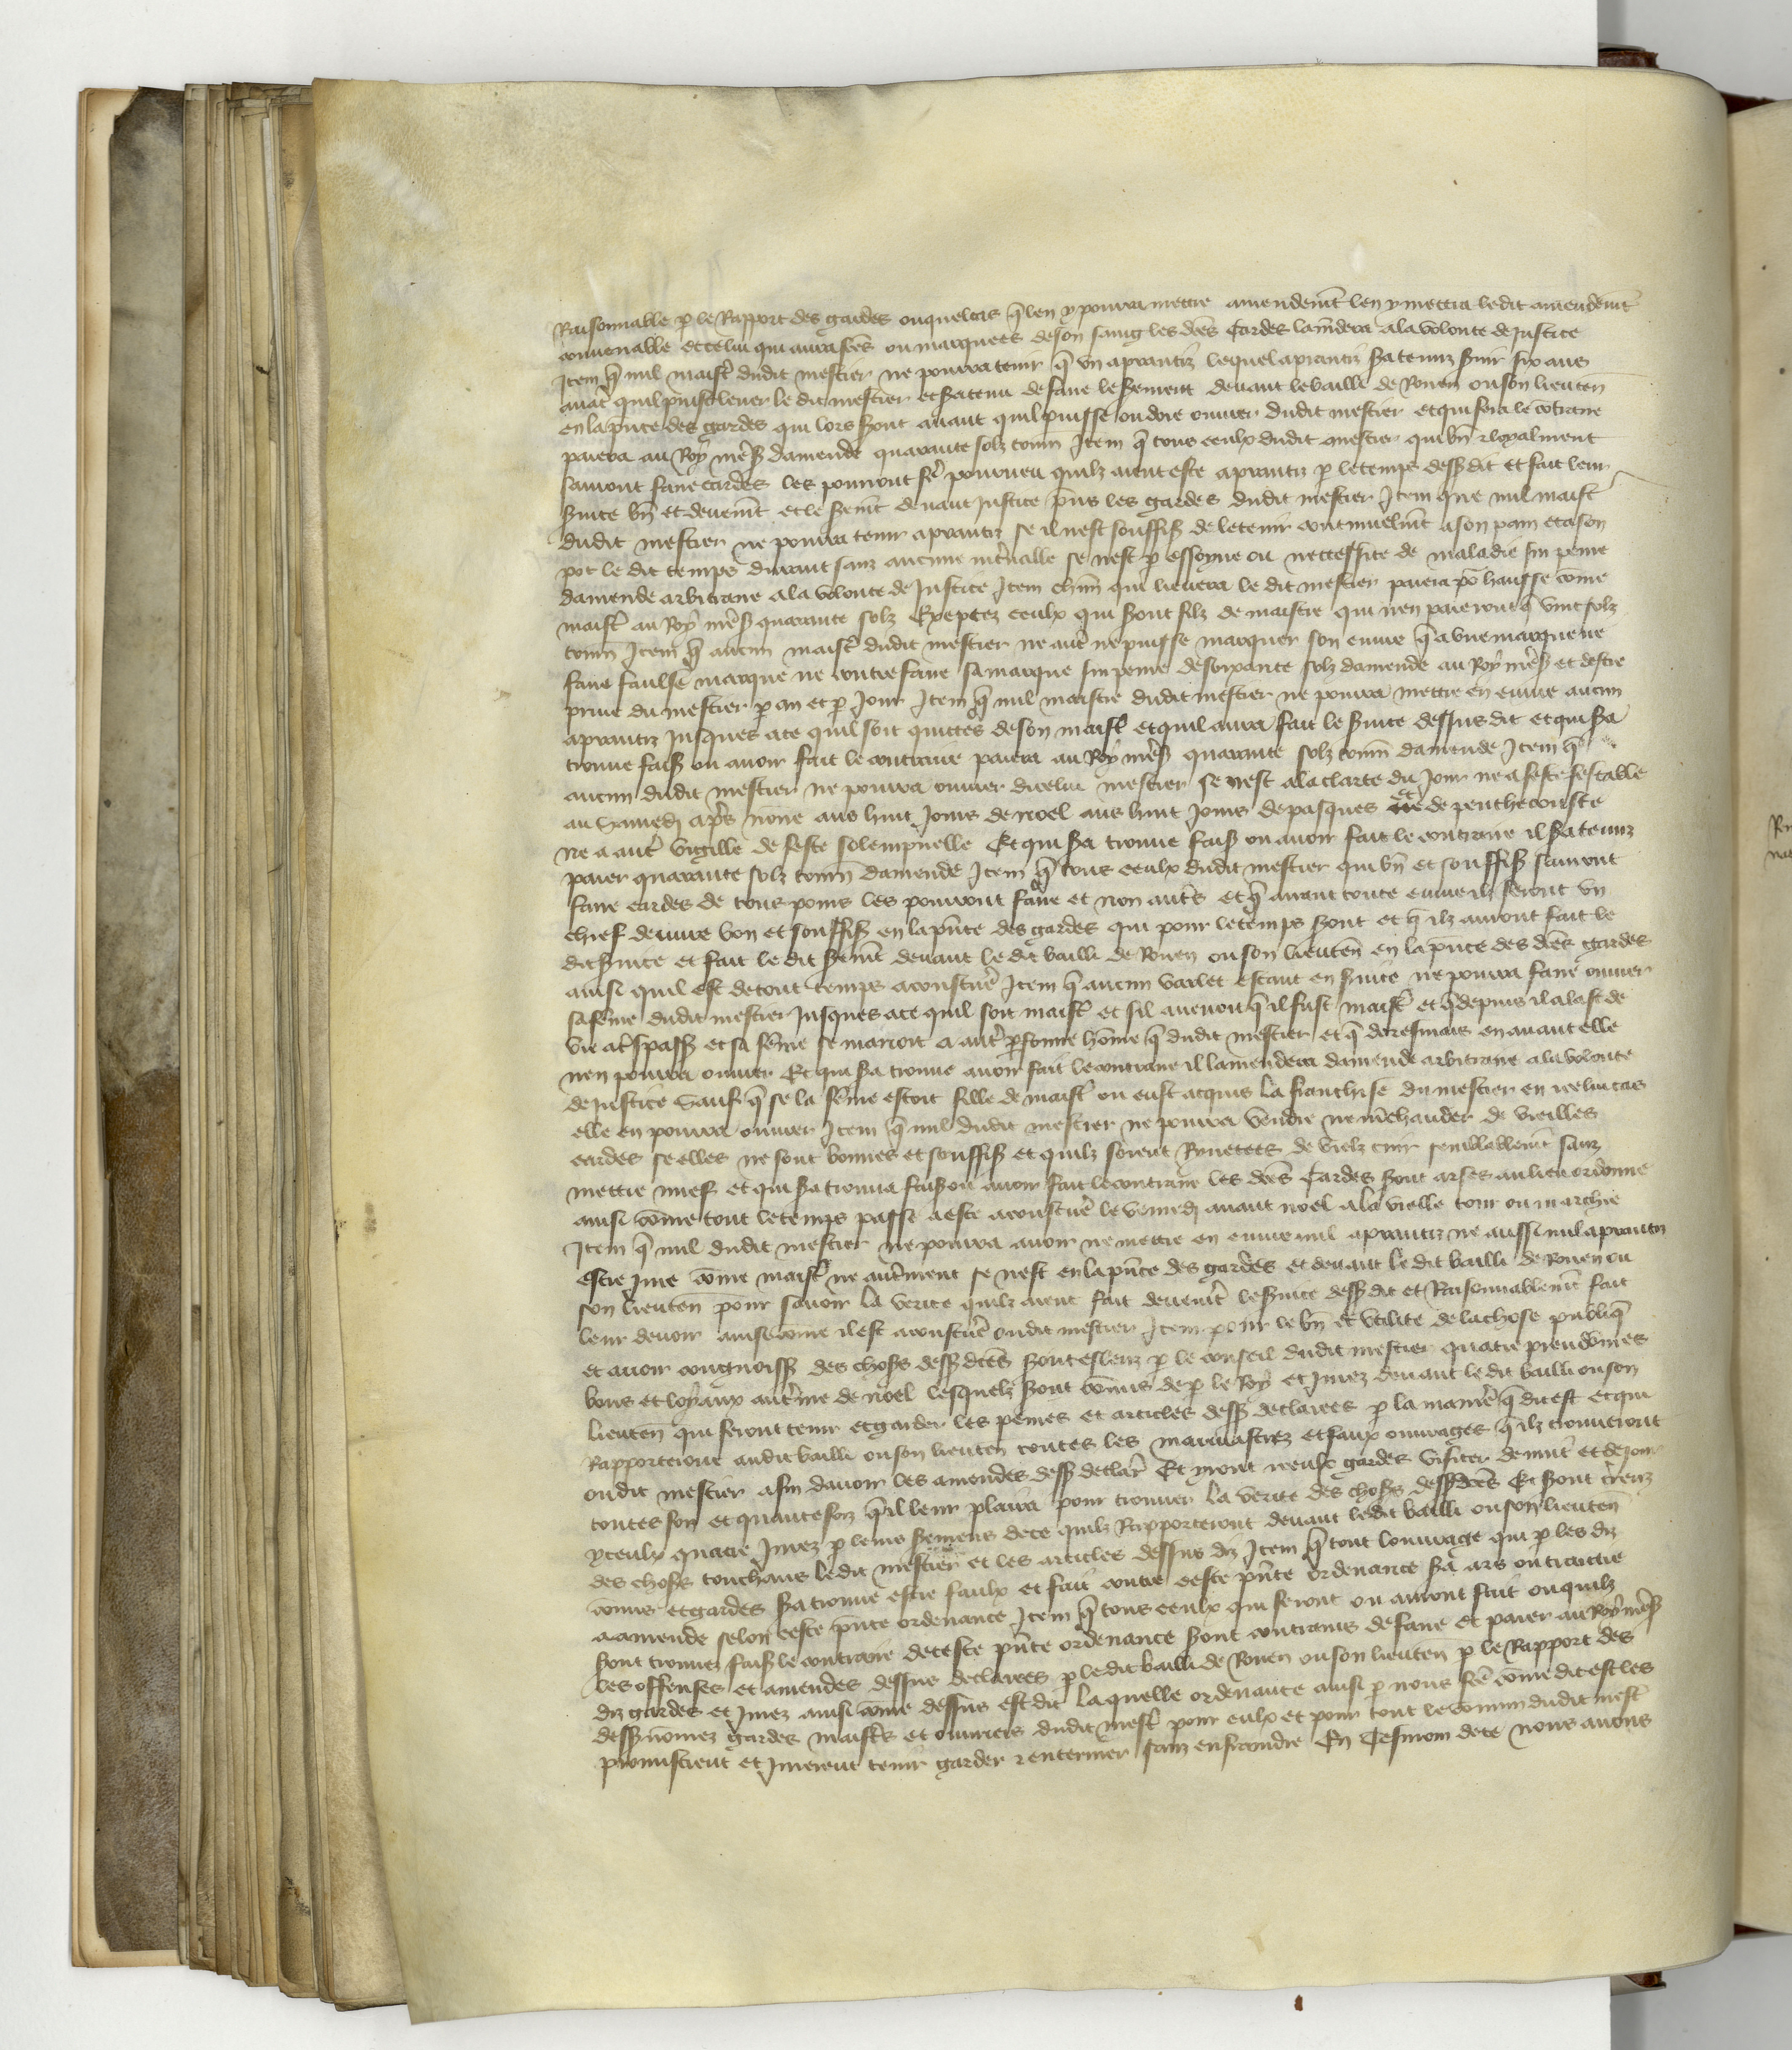 Raisonnable p le Rapport des gardes ouquel cas q̃ len y pourra mettre amendemt̃ len y mettra ledit amendemt̃
convenable et celui qui aura fc̃es ou marquees de son saing les dc̃es Cardes lam̃dera a la volonte de Justice
Item q̃ nul maist̃ dudit mestier ne pourra tenir q̃ un aprantiz lequel aprantiz sa tenuz s̃uir six ans
auãt quil puisse lever le dit mestier et sa tenu de faire le s̃ement devant le bailli de Rouen ou son lieuteñ
en la p̃nce des gardes qui lors s̃ont avant quil puisse ou doie ouvrer dudit mestier et qui fera le cõtraire
paiera au Roy nr̃es̃ damende quarante solz tourñ Item q̃ tous ceulx dudit mestier qui bñ et loyalment
sauront faire cardes les pourront fe̾ pourveu quilz aient este aprantiz p le temps dess̃ dit et fait leur
s̃uice bñ et deuemt̃ et le s̃emt̃ devant Justice p̃ns les gardes dudit mestier Item que nul maist̃
dudit mestier ne pourra tenir aprantiz se il nest souffis̃ de le tenir continuelmt̃ a son pain et a son
pot le dit temps durant sanz aucune int̃valle se nest p essoyne ou neccessite de maladie sur peine
damende arbitraire a la volonte de Justice Item chũn qui levera le dit mestier paiera po̾ hausse cõme
maist̃ au Roy nr̃es̃ quarante solz Exeptez ceulx qui sont filz de maistre qui nen paieront q̃ vint solz
tourñ Item q̃ aucun maist̃ dudit mestier ne aut̃ ne puisse marquer son euvre q̃ a une marque ne
faire faulse marque ne contrefaire sa marque sur peine de soixante solz damende au Roy nr̃es̃ et destre
prive du mestier p an et p Jour Item q̃ nul maistre dudit mestier ne pourra mettre en euvre aucun
aprantiz Jusques a ce quil soit quictes de son maist̃ et quil aura fait le s̃uice dessus dit et qui sa
trouve fais̃ ou avoir fait le contraire paiera au Roy nr̃es̃ quarante solz tourñ damende Item q̃
aucun dudit mestier ne pourra ouvrer dicelui mestier se nest a la clarte du Jour ne a feste festable
au samedi ap̃s nõne aus huit Jours de noel aus huit Jours de pasques et de penthecouste
ne a aut̃ vigille de feste solempnelle Et qui sa trouve fais̃ ou avoir fait le contraire il sa tenuz
paier quarante solz tourñ damende Item q̃ tous ceulx dudit mestier qui bñ et souffis̃ sauront
faire cardes de tous poins les pourront faire et non aut̃s et q̃ avant toute euvre ilz feront un
chief deuvre bon et souffis̃ en la p̃nce des gardes qui pour le temps s̃ont et q̃ ilz auront fait le
dit s̃uice et fait le dit s̃emt̃ devant le dit bailli de Rouen ou son lieuteñ en la p̃nce des dc̃es gardes
ainsi quil est de tout temps acoustume̾ Item q̃ aucun varlet estant en s̃uice ne pourra faire ouvrer
sa fẽme dudit mestier Jusques a ce quil soit maist̃ et sil avenoit q̃ il fust maist̃ et q̃ depuis il alast de
vie a tr̃espass̃ et sa fẽme se marioit a aut̃ psonne hõme q̃ dudit mestier et q̃ doresmais en avant elle
nen pourra ouvrer Et qui sa trouve avoir fait le contraire il lamendera damende arbitraire a la volonte
de Justice Sauf q̃ se la fẽme estoit fille de maist̃ ou eust acquis la franchise du mestier en icelui cas
elle en pourra ouvrer Item q̃ nul dudit mestier ne pourra vendre ne m̃chander de vieilles
cardes se elles ne sont bonnes et souffis̃ et quilz soient de vielz cuir semblablemt̃ sanz
mettre neuf et qui sa trouva fais̃ ou avoir fait le contraire les dc̃es Cardes s̃ont arses au lieu ordonne
ainsi cõme tout le temps passe a este acoustume̾ le vendredi avant noel a la vielle tour ou marchie
Item q̃ nul dudit mestier ne pourra avoir ne mettre en euvre nul aprantiz ne aussi nul aprantiz
estre Jure cõme maist̃ ne aut̃ment se nest en la p̃nce des gardes et devant le dit bailli de Rouen ou
son lieuteñ pour savoir la verite quilz aient fait deuemt̃ le s̃uice dess̃ dit et Raisonnablemt̃ fait
leur devoir ainsi cõme il est acoustume̾ oudit mestier Item pour le bñ et utilite de la chose publiq̃
et avoir congnoiss̃ des chos̃ dess̃ dc̃es s̃ont esleuz p le conseil dudit mestier quatre preudõmes
bons et loyaux au t̃me de noel lesquelz s̃ont cõmis de p le Roy et Jurez devant le dit bailli ou son
lieuteñ qui feront tenir et garder les peines et articles dess̃ declarees p la manie̾ q̃ dit est et qui
Rapporteront audit bailli ou son lieuteñ toutes les et faux ouvrages q̃ ilz trouveront
oudit mestier afin davoir les amendes dess̃ declar̃ Et iront iceulx gardes visiter de nuit̃ et de Jour
toutesfoiz et quantesfoiz q̃ il leur plaira pour trouver la verite des chos̃ dess̃ dc̃es Et s̃ont creuz
yceulx quatre Jurez p leurs s̃emens de ce quilz Rapporteront devant ledit bailli ou son lieuteñ
des chos̃ touchans ledit mestier et les articles dessus diz Item q̃ tout louvrage qui p les diz
cõmis et gardes sa trouve estre faulx et fait contre ceste p̃nte ordenance sa ars ou
a amende selon ceste p̃nte ordenance Item q̃ tous ceulx qui feront ou auront fait ou quilz
s̃ont trouvez fais̃ le contraire de ceste p̃nte ordenance s̃ont contrains de faire et paier au Roy nr̃es̃
les offenses et amendes dessus declarees p le dit bailli de Rouen ou son lieuteñ p le Rapport des
diz gardes et Jurez ainsi cõme dessus est dit Laquelle ordenance ainsi p nous fc̃e cõme dit est les
dess̃ nõmez gardes maist̃s et ouvriers dudit mest̃ pour eulx et pour tout le cõmun dudit mest̃
promistrent et Jurerent tenir garder et enteriner sanz enfraindre En Tesmoin de ce nous avons